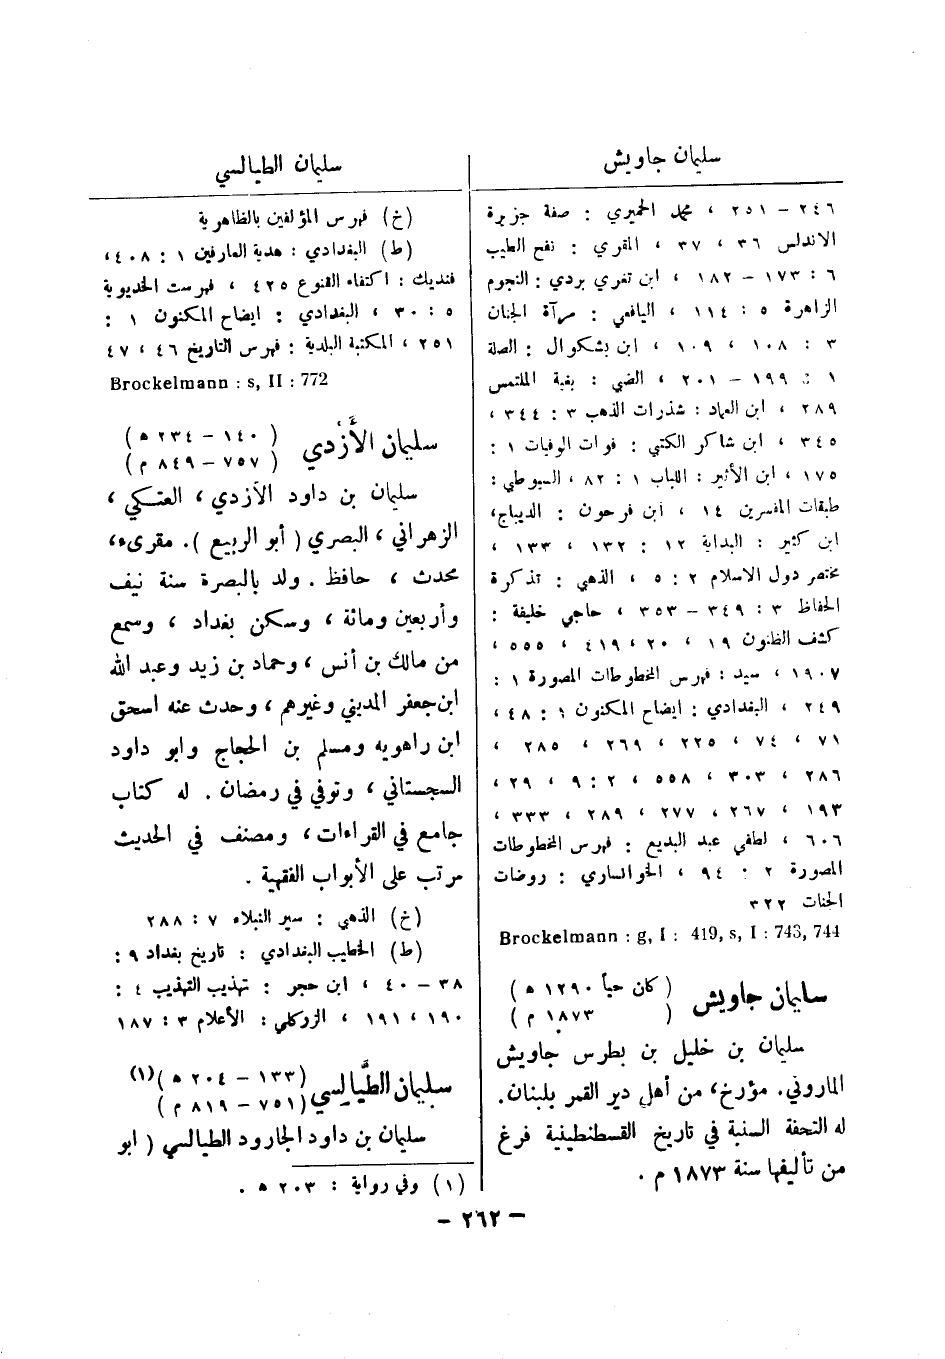 سليمان جاويش
٢٤٦ – ٢٥١ ، محمد الحميري : صفة جزيرة
الاندلس ٣٦ ، ٣٧ ، المقري : نفح الطيب
٦ : ١٧٣ – ١٨٢ ، ابن تغري بردي : النجوم
الزاهرة ٥ : ١١٤ ، اليافعي : مرآة الجنان
٣ : ١٠٨ ، ١٠٩ ، ابن بشكوال : الصلة
١ : ١٩٩ – ٢٠١ ، الضبي : بغية الملتمس
٢٨٩ ، ابن العماد : شذرات الذهب ٣ : ٣٤٤ ،
٣٤٥ ، ابن شاكر الكتبي : فوات الوفيات ١ :
١٧٥ ، ابن الأثير : اللباب ١ : ٨٢ ، السيوطي :
طبقات المفسرين ١٤ ، ابن فرحون : الديباج،
ابن كثير : البداية ١٢ : ١٣٢ ، ١٣٣ ،
مختصر دول الاسلام ٢ : ٥ ، الذهبي : تذكرة
الحفاظ ٣ : ٣٤٩ – ٣٥٣ ، حاجي خليفة :
كشف الظنون ١٩ ، ٢٠ ، ٤١٩ ، ٥٥٥ ،
١٩٠٧ ، سيد : فهرس المخطوطات المصورة ١ :
٢٤٩ ، البغدادي : ايضاح المكنون ١ : ٤٨ ،
٧١ ، ٧٤ ، ٢٢٥ ، ٢٦٩ ، ٢٨٥ ،
٢٨٦ ، ٣٠٣ ، ٥٥٨ ، ٢ : ٩ ، ٢٩ ،
١٩٣ ، ٢٦٧ ، ٢٧٧ ، ٢٨٩ ، ٣٣٣ ،
٦٠٦ ، لطفي عبد البديع : فهرس المخطوطات
المصورة ٢ : ٩٤ ، الخوانساري : روضات
الجنات ٣٢٢
Brockelmann : g, I : 419, s, I : 743, 744
سليمان جاويش ( كان حياً ١٢٩٠ ه )
( ١٨٧٣ م )
سليمان بن خليل بن بطرس جاويش
الماروني. مؤرخ، من أهل دير القمر بلبنان.
له التحفة السنية في تاريخ القسطنطينية فرغ
من تأليفها سنة ١٨٧٣ م .
سليمان الطيالسي
(خ) فهرس المؤلفين بالظاهرية
(ط) البغدادي : هدية العارفين ١ : ٤٠٨ ،
فنديك : اكتفاء القنوع ٤٢٥ ، فهرست الخديوية
٥ : ٣٠ ، البغدادي : ايضاح المكنون ١ :
٢٥١ ، المكتبة البلدية : فهرس التاريخ ٤٦ ، ٤٧
Brockelmann : s, II : 772
سليمان الأَزْدي ( ١٤٠ – ٢٣٤ ه )
( ٧٥٧ – ٨٤٩ م )
سليمان بن داود الأزدي ، العتكي ،
الزهراني ، البصري ( أبو الربيع ). مقرىء،
محدث ، حافظ . ولد بالبصرة سنة نيف
وأربعين ومائة ، وسكن بغداد ، وسمع
من مالك بن أنس ، وحماد بن زيد وعبد الله
ابن جعفر المديني وغيرهم ، وحدث عنه اسحق
ابن راهويه ومسلم بن الحجاج وابو داود
السجستاني ، وتوفي في رمضان . له كتاب
جامع في القراءات ، ومصنف في الحديث
مرتب على الأبواب الفقهية .
(خ) الذهبي : سير النبلاء ٧ : ٢٨٨
(ط) الخطيب البغدادي : تاريخ بغداد ٩ :
٣٨ – ٤٠ ، ابن حجر : تهذيب التهذيب ٤ :
١٩٠ ، ١٩١ ، الزركلي : الأعلام ٣ : ١٨٧
سليمان الطَّيالِسي (١٣٣ – ٢٠٤ ه )(١)
(٧٥١ – ٨١٩ م )
سليمان بن داود الجارود الطيالسي ( ابو
(١) وفي رواية : ٢٠٣ ه .
– ٢٦٢ –